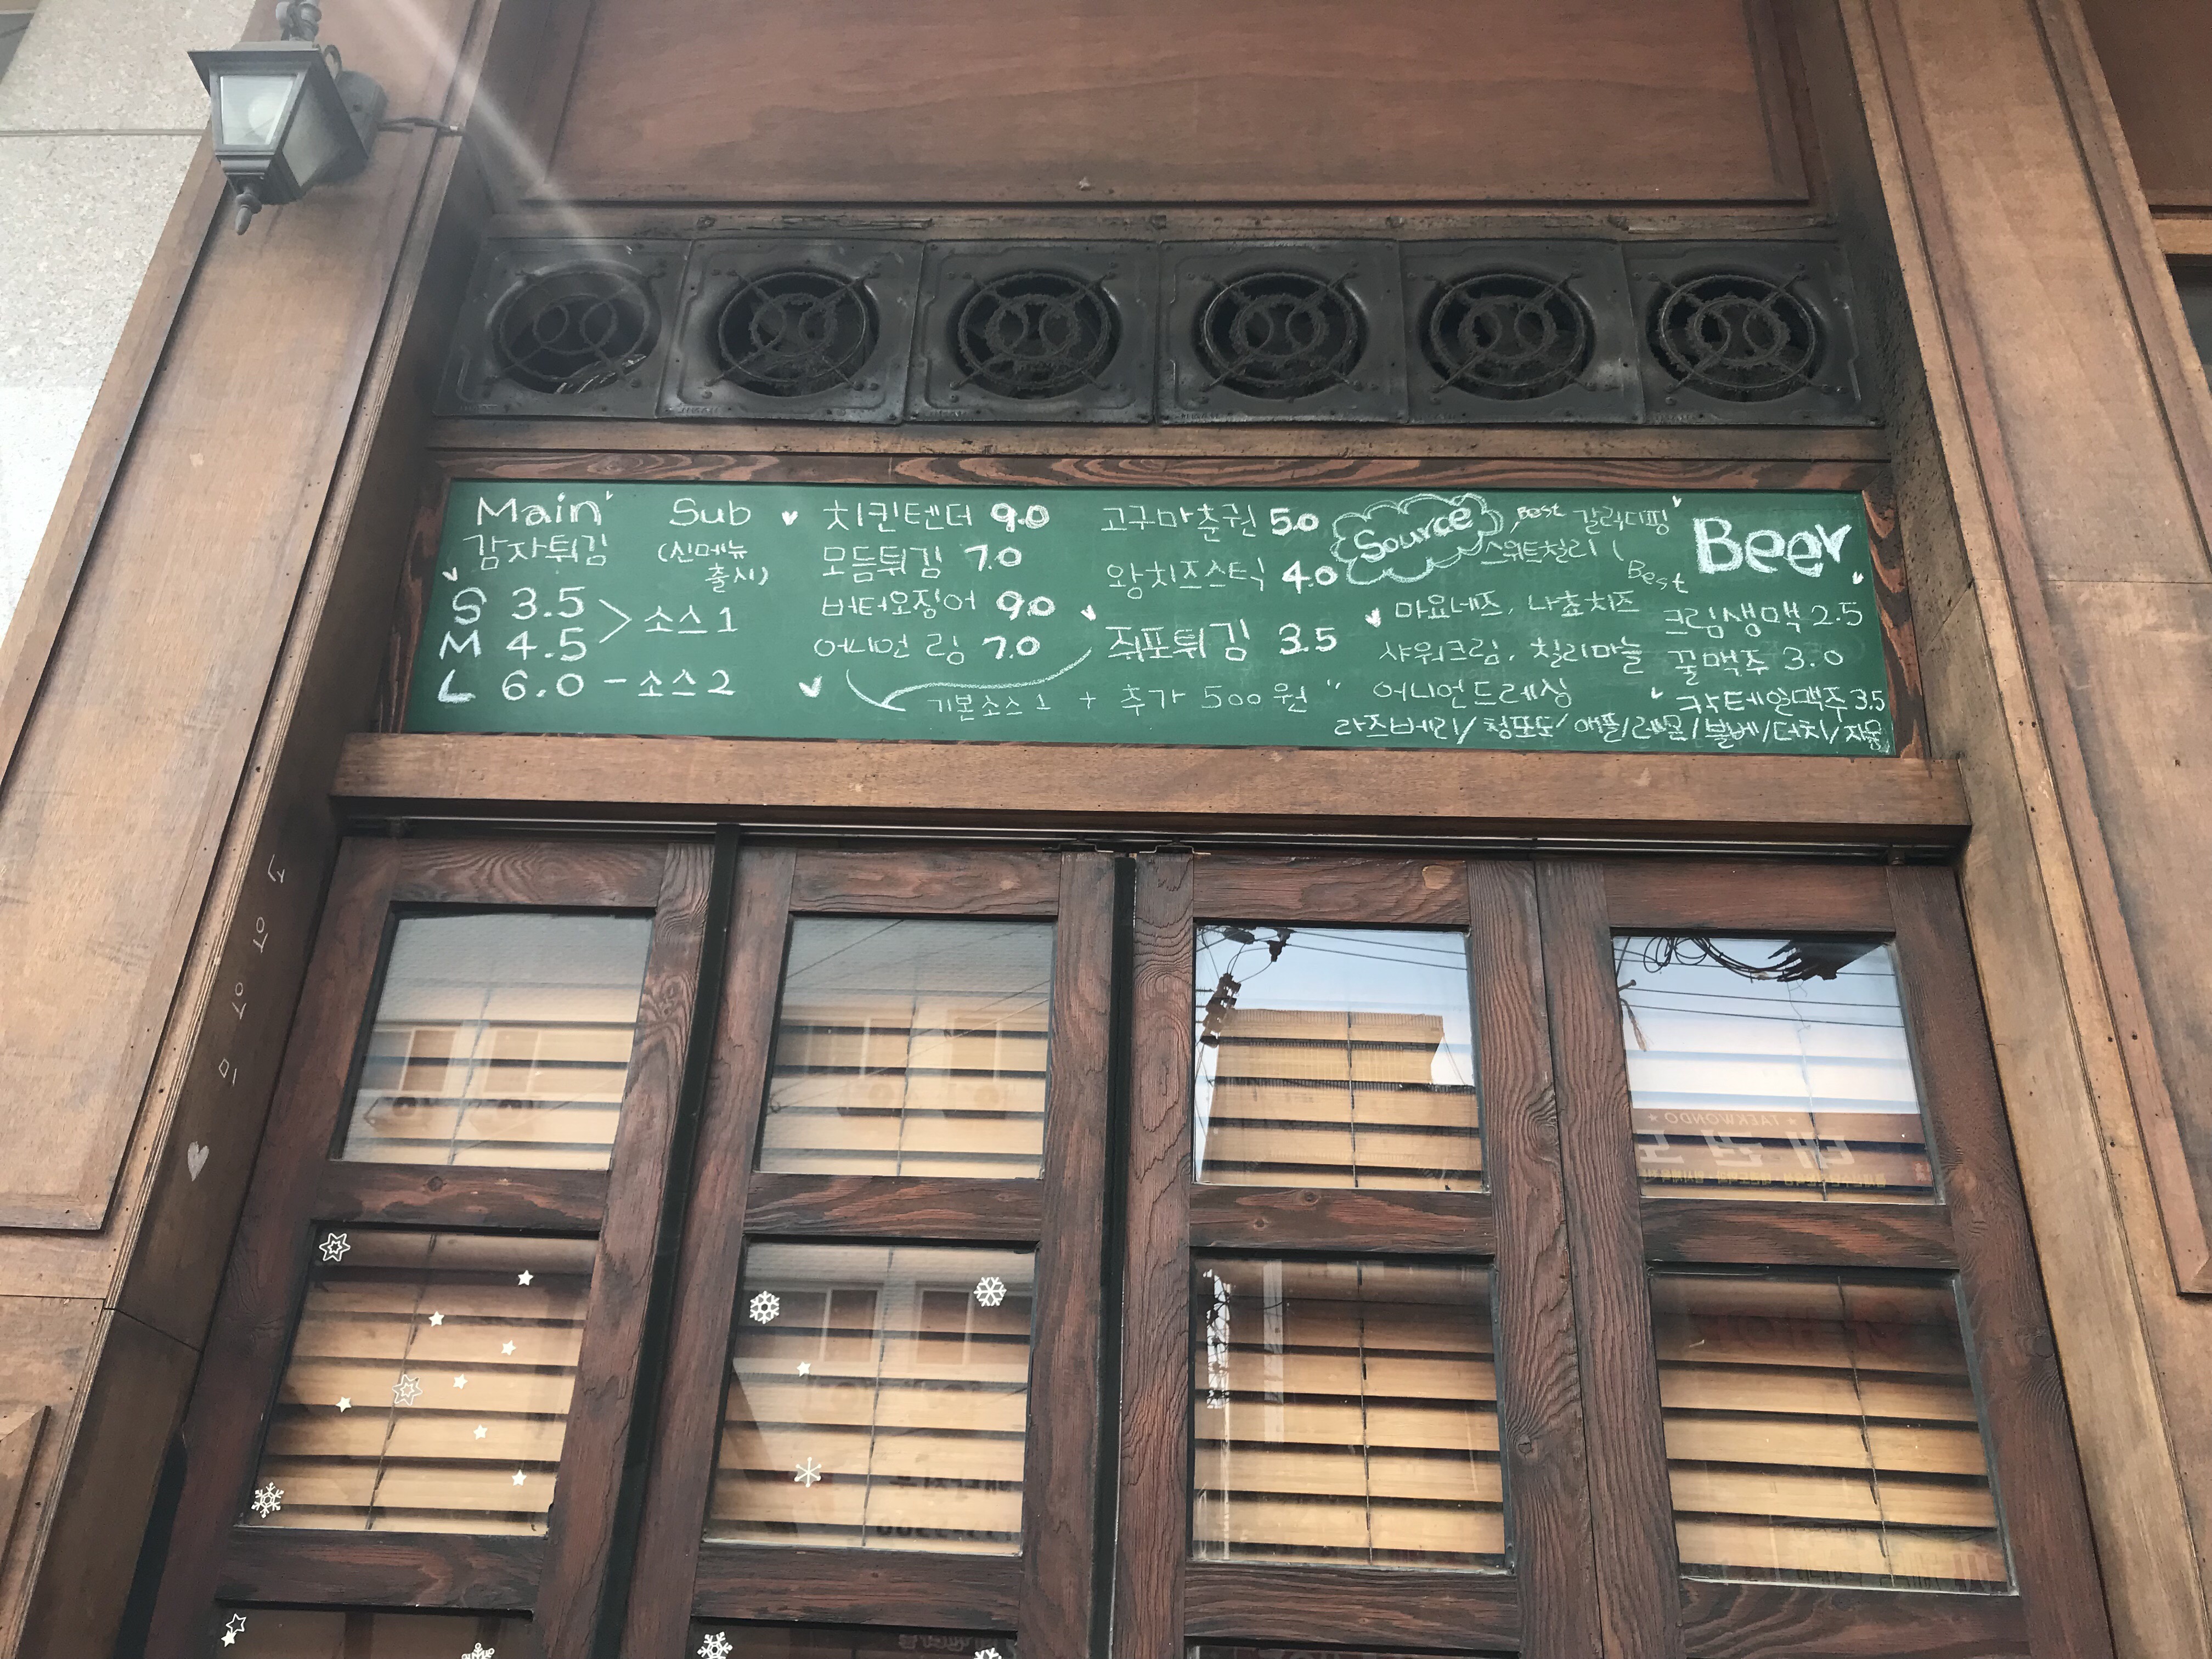 Main
감자튀김
S 3.5
M 4.5
> 소스1
L 6.0 - 소스2
Sub
(신메뉴
출시)
치킨텐더 9.0
모듬튀김 7.0
버터오징어 9.0
어니언링 7.0
고구마춘권 5.0
왕치즈스틱 4.0
쥐포튀김 3.5
기본소스1 + 추가 500원
Source
Best 갈릭디핑
스위트칠리
Best
마요네즈, 나쵸치즈
샤워크림, 칠리마늘
어니언드레싱
Beer
크림생맥 2.5
꿀맥주 3.0
칵테일맥주 3.5
라즈베리/청포도/애플/레몬/블베/더치/자몽
TAEKWONDO
태권도